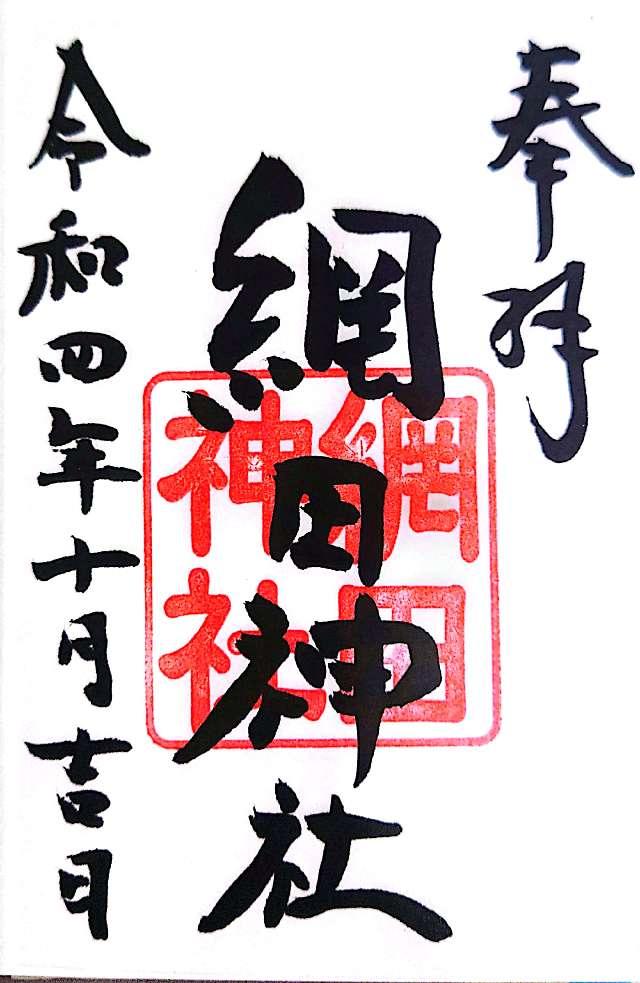 奉拝
網田神社
網田
神社
令和四年十月吉日